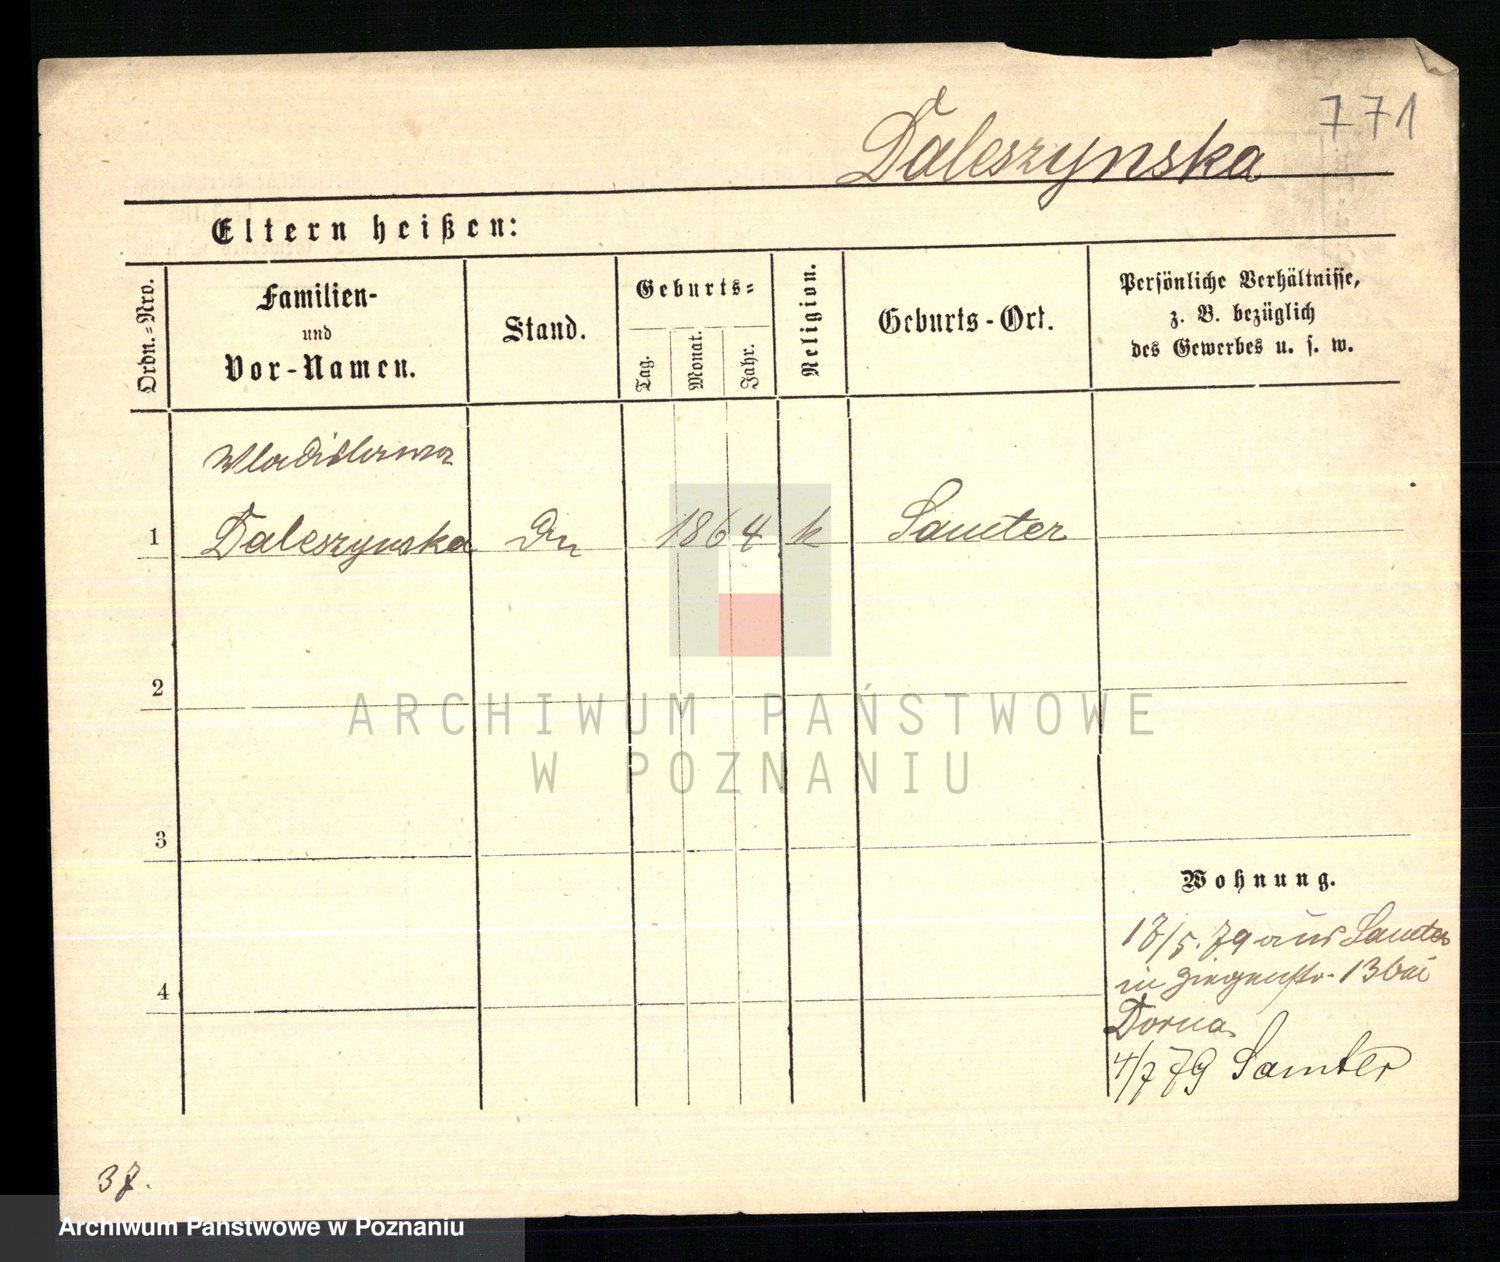 771
Daleszynska
Eltern heißen:
Ordn.=Nro.
Familien-
und
Vor-Namen.
Stand.
Geburts=
Tag.
Monat.
Jahr.
Religion.
Geburts-Ort.
Persönliche Verhältnisse,
z. B. bezüglich
des Gewerbes u. s. w.
Wladislawa
1 Daleszynska 1864 k Samter
2
ARCHIWUM PAŃSTWOWE
W POZNANIU
3
Wohnung.
17/5.79 aus Samter
4
in Ziegenstr. 13 bei
Dorna
4/7 79 Samter
37.
Archiwum Państwowe w Poznaniu